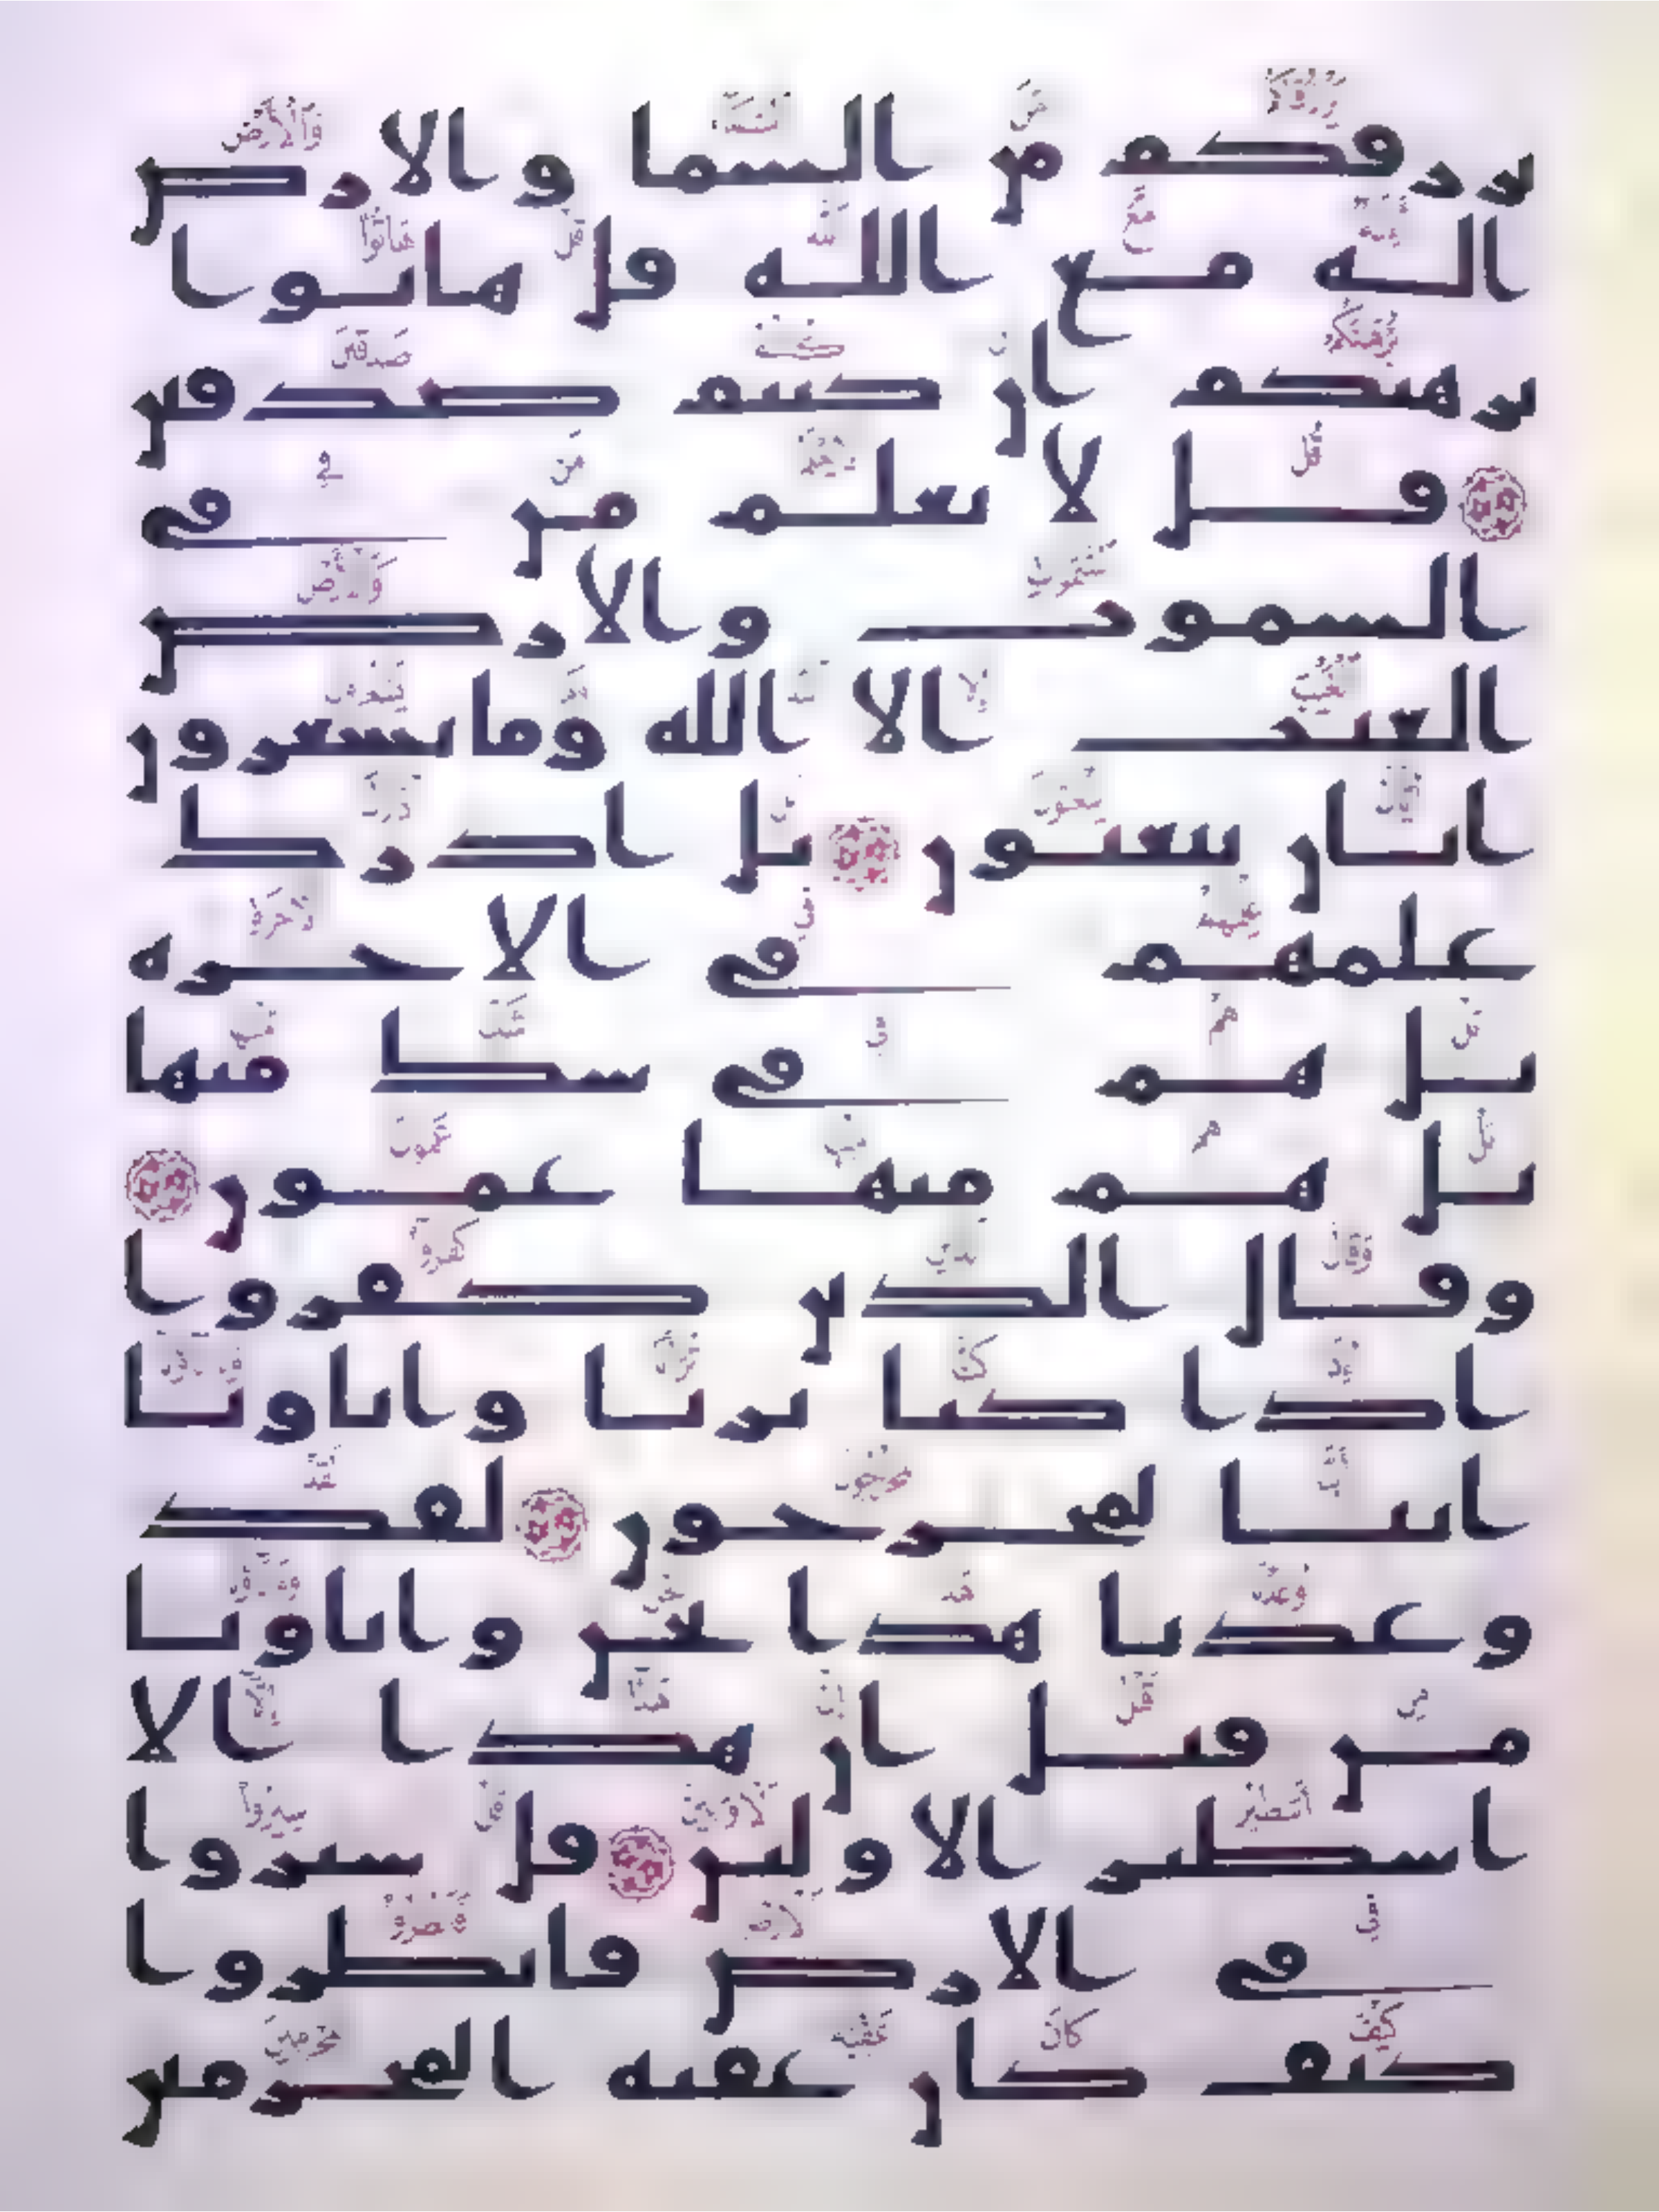 يرزقكم من السما والارض
اله مع الله قل هاتوا
برهنكم ان كنتم صدقين
قل لا يعلم من في
السموت والارض
الغيب الا الله وما يشعرون
ايان يبعثون بل ادرك
علمهم في الاخره
بل هم في شك منها
بل هم منها عمون
وقال الذين كفروا
اذا كنا تربا واباونا
اينا لمخرجون لقد
وعدنا هذا نحن واباونا
من قبل ان هذا الا
اسطير الاولين قل سيروا
في الارض فانظروا
كيف كان عقبه المجرمين